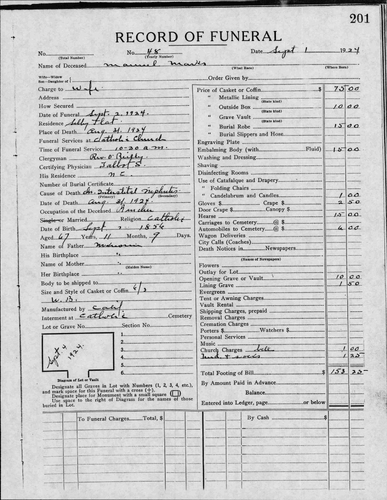 201
RECORD OF FUNERAL
No. No. 48 Date Sept 1 1924
(Total Number) (Yearly Number)
Name of Deceased Manuel Marks
(What Race) (Where Born)
Wife—Widow
Son—Daughter of Order Given by
Charge to Wife
Address
How Secured
Date of Funeral Sept. 2, 1924.
Residence Flat
Place of Death Aug 31, 1924
Funeral Services at Catholic Church
Time of Funeral Service 10:30 a.m.
Clergyman Rev.
Certifying Physician Talbot S.
His Residence
Number of Burial Certificate
Cause of Death Interstitial Nephritis
(Primary) (Secondary)
Date of Death Aug 31, 1924
Occupation of the Deceased Rancher
Single or Married Religion Catholic
Date of Birth Sept 1856
Aged 67 Years, 11 Months, 9 Days
Name of Father
His Birthplace
Name of Mother
(Maiden Name)
Her Birthplace
Body to be shipped to
Size and Style of Casket or Coffin 6/3
Manufactured by
Interment at Catholic Cemetery
Lot or Grave No. Section No.
Sept 4 1924.
1.
2.
3.
4.
5.
6.
Diagram of Lot or Vault
Designate all Graves in Lot with Numbers (1, 2, 3, 4, etc.),
and mark space for this Funeral with a cross (+).
Designate place for Monument with a small square
Use space to the right of Diagram for the names of those
buried in Lot.
Price of Casket or Coffin $ 75 00
" Metallic Lining
(State kind)
" Outside Box 10 00
(State kind)
" Grave Vault
(State kind)
" Burial Robe 15 00
(State kind)
" Burial Slippers and Hose
Engraving Plate
Embalming Body (with Fluid) 15 00
Washing and Dressing
Shaving
Disinfecting Rooms
Use of Catafalque and Drapery
" Folding Chairs
" Candelabrum and Candles 1 00
Gloves $ Crape $ 2 50
Door Crape Canopy $
Hearse 15 00
Carriages to Cemetery @ $
Automobiles to Cemetery @ $ 6 00
Wagon Deliveries
City Calls (Coaches)
Death Notices in Newspapers
(Names of Newspapers)
Flowers
Outlay for Lot
Opening Grave or Vault 10 00
Lining Grave 1 50
Evergreen
Tent or Awning Charges
Vault Rental
Shipping Charges, prepaid
Removal Charges
Cremation Charges
Porters $ Watchers $
Personal Services
Music
Church Charges 1 00
1 25
Total Footing of Bill $ 153 25
By Amount Paid in Advance
Balance
Entered into Ledger, page or below.
To Funeral Charges Total, $
By Cash $